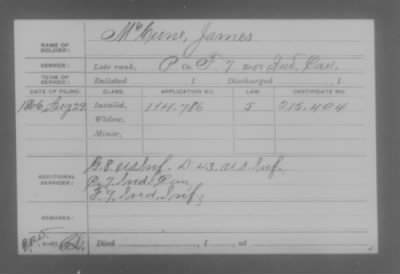 NAME OF SOLDIER: McCune, James
SERVICE: Late rank, P Co. F. 7 Reg't Ind. Cav.
TERM OF SERVICE: Enlisted , 1 Discharged , 1
DATE OF FILING. CLASS. APPLICATION NO. LAW. CERTIFICATE NO.
1866, Aug 29 Invalid, 114.786 J 215.404
Widow,
Minor,
B. 8. U.S. Inf. D. 43. U.S. Inf.
ADDITIONAL SERVICES: 7 Ind. Cav
F. 7. Ind. Inf.
REMARKS:
Died , 1 , at